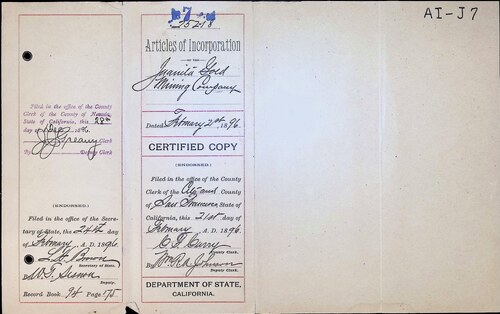 7
25218
AI-J7
Articles of Incorporation
OF THE
Juanita Gold
Mining Company
Dated February 21st 1896.
CERTIFIED COPY
(ENDORSED.)
Filed in the office of the County
Clerk of the City and County
of San Francisco State of
California, this 21st day of
February A. D. 1896.
C. F. Curry
County Clerk.
By Wm. R. A. Johnson
Deputy Clerk.
DEPARTMENT OF STATE,
CALIFORNIA.
Filed in the office of the County
Clerk of the County of Nevada,
State of California, this 28th
day of 1896.
J. L. Greany Clerk
By Deputy Clerk
(ENDORSED)
Filed in the office of the Secre-
tary of State, the 24th day
of February A. D. 1896.
L. H. Brown
Secretary of State.
By W. T. Sesnon
Deputy.
Record Book 94 Page 175